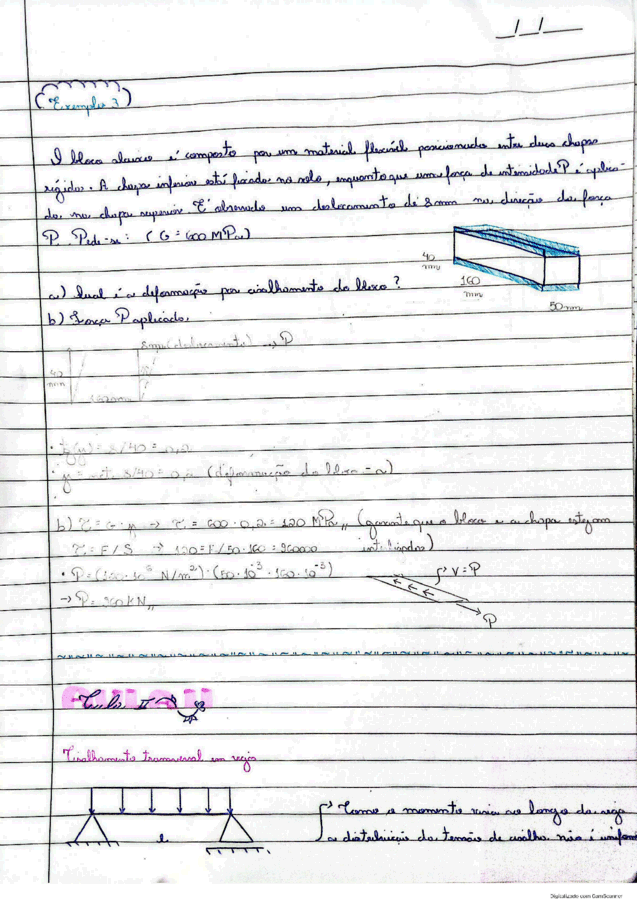 _/_/_
Exemplo 3
O bloco abaixo é composto por um material flexível posicionado entre duas chapas
rígidas. A chapa inferior está fixada no solo, enquanto que uma força de intensidade P é aplica-
da na chapa superior. É observado um deslocamento de 8mm na direção da força
P. Pede-se: (G = 600 MPa)
40 mm
160 mm
50 mm
a) Qual é a deformação por cisalhamento do bloco?
b) Força P aplicada.
8mm (deslocamento) → P
40 mm
160mm
8/40 = 0,2
8/40 = 0,2 (deformação do bloco - a)
b) τ = G · γ → τ = 600 · 0,2 = 120 MPa,, (garante que o bloco e a chapa estejam
τ = F / S → 120 = F / 50 · 160 = 960000 interligados)
• P = (120 · 10⁶ N/m²) · (50 · 10⁻³ · 160 · 10⁻³)
→ P = 960 kN,,
V = P
P
AULA 11
Cisalhamento transversal em vigas
l
Como o momento varia ao longo da viga
a distribuição da tensão de cisalha. não é uniforme
Digitalizado com CamScanner